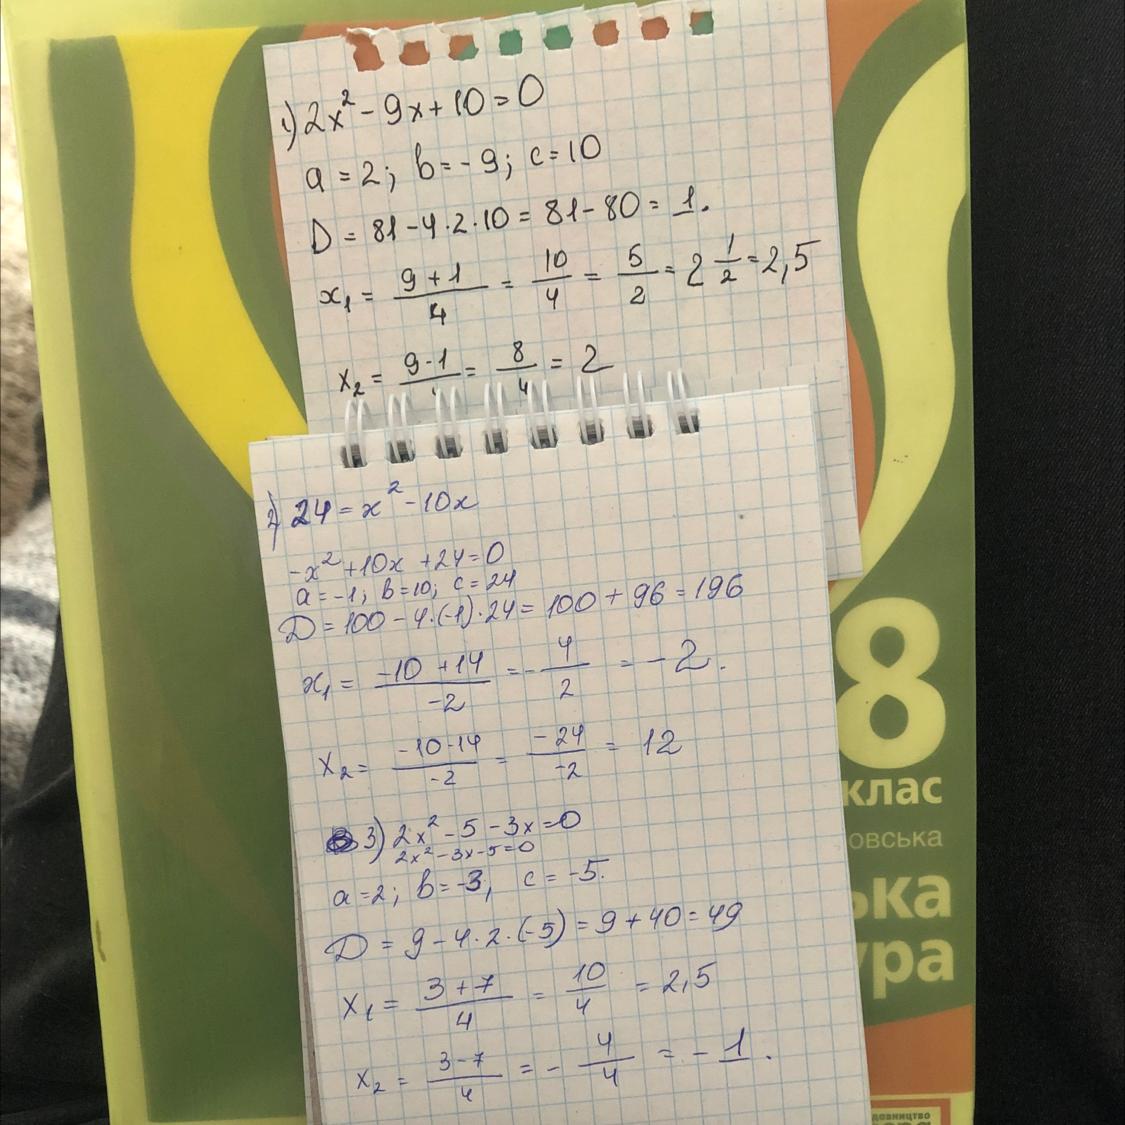 1) 2x² - 9x + 10 = 0
a = 2; b = -9; c = 10
D = 81 - 4·2·10 = 81 - 80 = 1.
x₁ = (9 + 1)/4 = 10/4 = 5/2 = 2 1/2 = 2,5
x₂ = (9 - 1)/4 = 8/4 = 2
2) 24 = x² - 10x
-x² + 10x + 24 = 0
a = -1; b = 10; c = 24
D = 100 - 4·(-1)·24 = 100 + 96 = 196
x₁ = (-10 + 14)/(-2) = -4/2 = -2.
x₂ = (-10 - 14)/(-2) = (-24)/(-2) = 12
3) 2x² - 5 - 3x = 0
2x² - 3x - 5 = 0
a = 2; b = -3, c = -5.
D = 9 - 4·2·(-5) = 9 + 40 = 49
x₁ = (3 + 7)/4 = 10/4 = 2,5
x₂ = (3 - 7)/4 = -4/4 = -1.
8
клас
овська
ька
ура